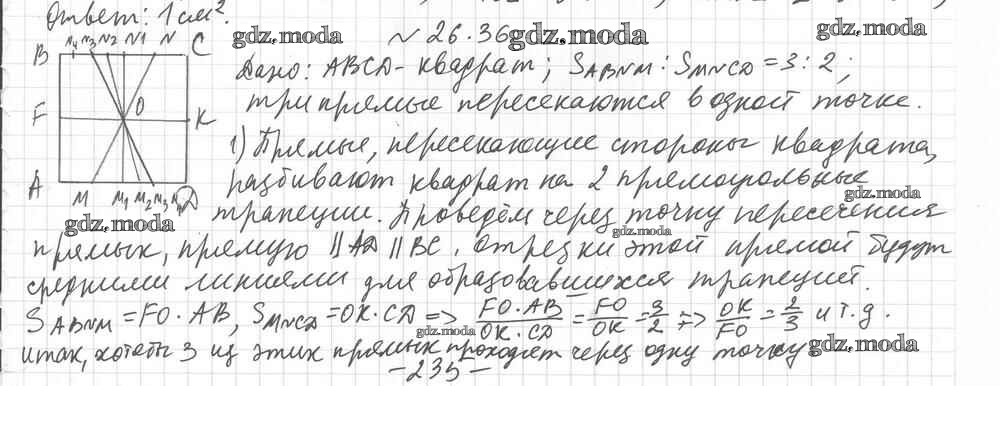 Ответ: 1 см².
gdz.moda
№ 26.36
gdz.moda
gdz.moda
B N4 N3 N2 N1 N C
F O K
A M M1 M2 M3 M4 D
Дано: ABCD - квадрат; SABNM : SMNCD = 3 : 2;
три прямые пересекаются в одной точке.
1) Прямые, пересекающие стороны квадрата,
разбивают квадрат на 2 прямоугольные
gdz.moda
трапеции. Проведём через точку пересечения
gdz.moda
gdz.moda
прямых, прямую || AD || BC. Отрезки этой прямой будут
средними линиями для образовавшихся трапеций.
SABNM = FO · AB, SMNCD = OK · CD => FO · AB / OK · CD = FO / OK = 3 / 2 => OK / FO = 2 / 3 и т.д.
gdz.moda
итак, хотябы 3 из этих прямых проходят через одну точку
gdz.moda
- 235 -